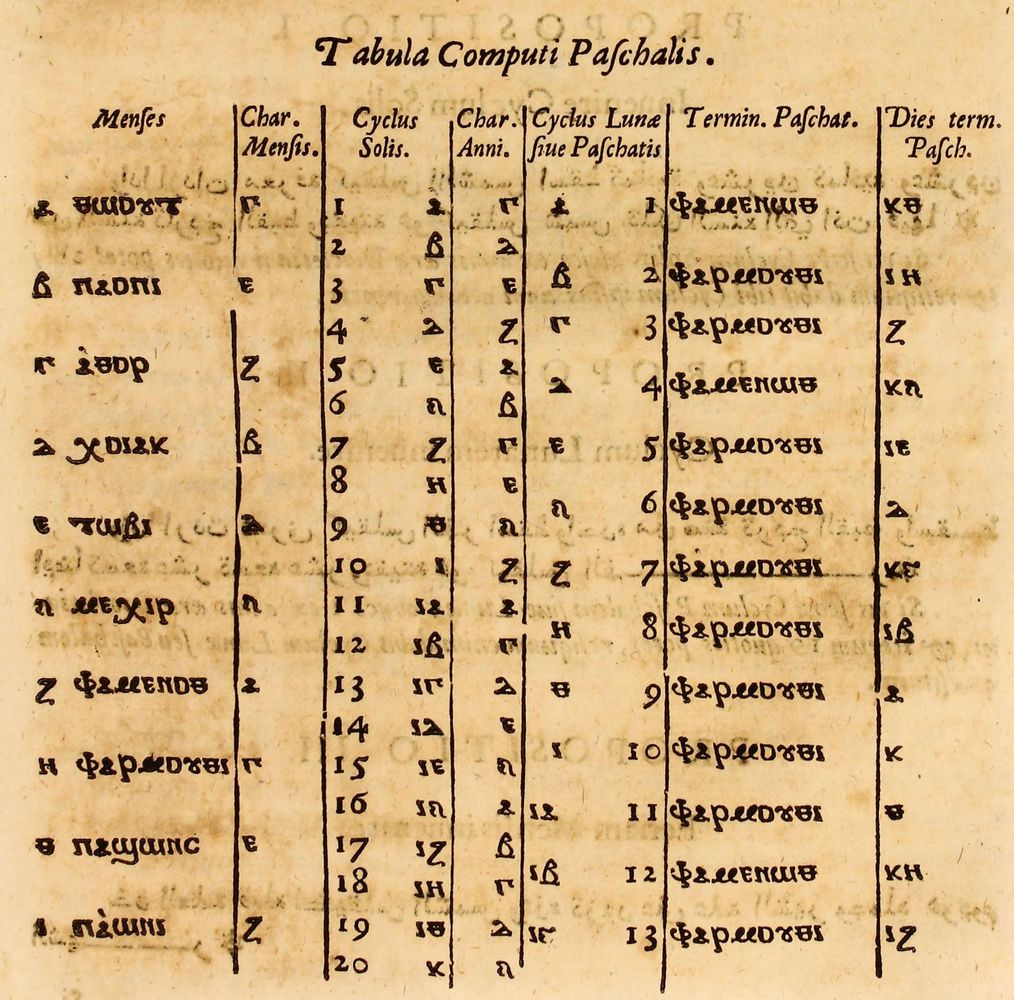 Tabula Computi Paſchalis.
Menſes Char. Menſis. Cyclus Solis. Char. Anni. Cyclus Lunæ ſiue Paſchatis Termin. Paſchat. Dies term. Paſch.
ⲁ ⲑⲱⲟⲩⲧ ⲅ 1 ⲁ ⲅ ⲁ 1 ⲫⲁⲙⲉⲛⲱⲑ ⲕⲑ
2 ⲃ ⲇ
ⲃ ⲡⲁⲟⲡⲓ ⲉ 3 ⲅ ⲉ ⲃ 2 ⲫⲁⲣⲙⲟⲩⲑⲓ ⲓⲏ
4 ⲇ ⲍ ⲅ 3 ⲫⲁⲣⲙⲟⲩⲑⲓ ⲍ
ⲅ ⲁ̀ⲑⲟⲣ ⲍ 5 ⲉ ⲁ ⲇ 4 ⲫⲁⲙⲉⲛⲱⲑ ⲕⲋ
6 ⲋ ⲃ
ⲇ ⲭⲟⲓⲁⲕ ⲃ 7 ⲍ ⲅ ⲉ 5 ⲫⲁⲣⲙⲟⲩⲑⲓ ⲓⲉ
8 ⲏ ⲉ
ⲉ ⲧⲱⲃⲓ ⲇ 9 ⲑ ⲋ ⲋ 6 ⲫⲁⲣⲙⲟⲩⲑⲓ ⲇ
10 ⲓ ⲍ ⲍ 7 ⲫⲁⲣⲙⲟⲩⲑⲓ ⲕⲅ
ⲋ ⲙⲉⲭⲓⲣ ⲋ 11 ⲓⲁ ⲁ
12 ⲓⲃ ⲅ ⲏ 8 ⲫⲁⲣⲙⲟⲩⲑⲓ ⲓⲃ
ⲍ ⲫⲁⲙⲉⲛⲟⲑ ⲁ 13 ⲓⲅ ⲇ ⲑ 9 ⲫⲁⲣⲙⲟⲩⲑⲓ ⲁ
14 ⲓⲇ ⲉ
ⲏ ⲫⲁⲣⲙⲟⲩⲑⲓ ⲅ 15 ⲓⲉ ⲋ ⲓ 10 ⲫⲁⲣⲙⲟⲩⲑⲓ ⲕ
16 ⲓⲋ ⲁ ⲓⲁ 11 ⲫⲁⲣⲙⲟⲩⲑⲓ ⲑ
ⲑ ⲡⲁϣⲱⲛⲥ ⲉ 17 ⲓⲍ ⲃ
18 ⲓⲏ ⲅ ⲓⲃ 12 ⲫⲁⲙⲉⲛⲱⲑ ⲕⲏ
ⲓ ⲡⲁ̀ⲱⲛⲓ ⲍ 19 ⲓⲑ ⲇ ⲓⲅ 13 ⲫⲁⲣⲙⲟⲩⲑⲓ ⲓⲍ
20 ⲕ ⲋ